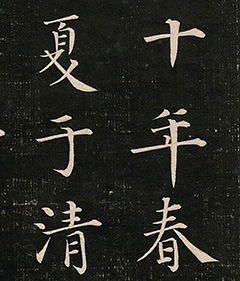 十年春
夏于清